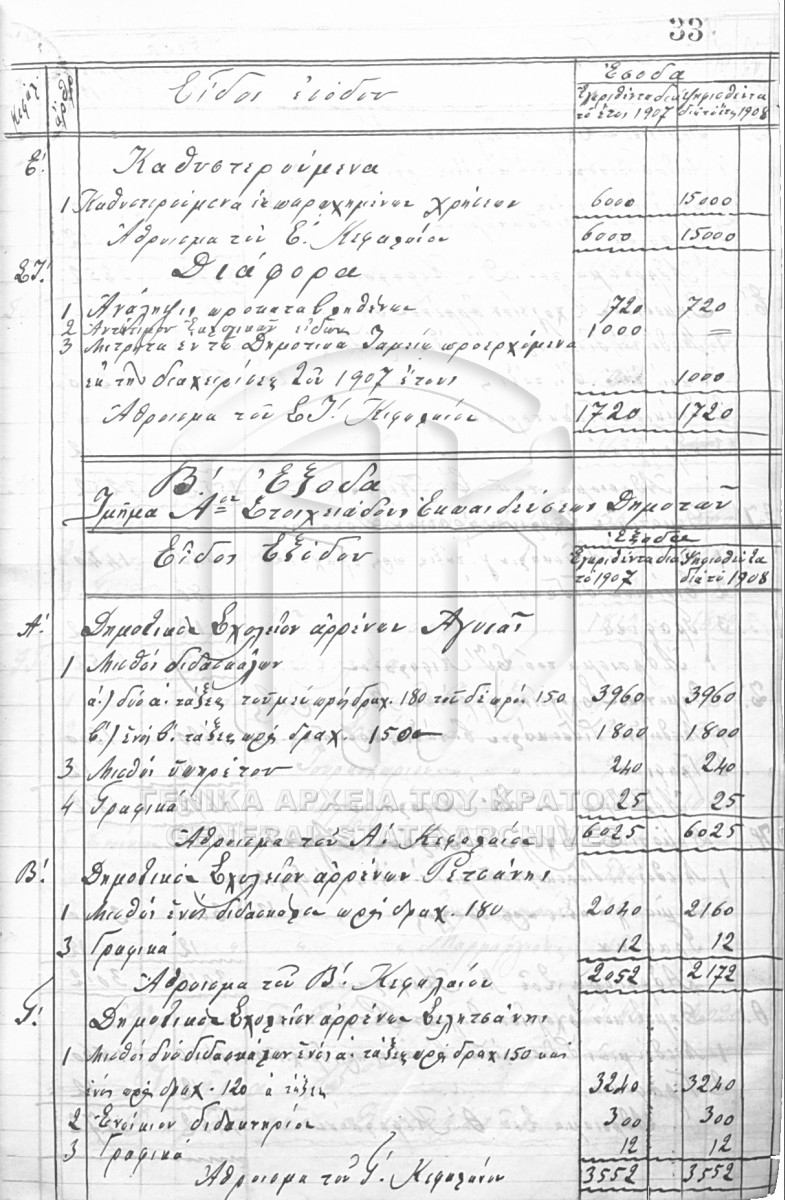 33
Κεφάλ. άρθρ. Είδος εσόδου Έσοδα
Εγκριθέντα δια το έτος 1907 Ψηφισθέντα δια το έτος 1908
Ε! Καθυστερούμενα
1 Καθυστερούμενα εκ παρωχημένων χρήσεων 6000 15000
Άθροισμα του Ε! Κεφαλαίου 6000 15000
ΣΤ! Διάφορα
1 Ανάληψις προκαταβληθέντων 720 720
2 Αντίτιμον σχολικών ειδών 1000 =
3 Μετρητά εν τω Δημοτικώ Ταμείω προερχόμενα
εκ της διαχειρίσεως του 1907 έτους 1000
Άθροισμα του ΣΤ! Κεφαλαίου 1720 1720
Β! Έξοδα
Τμήμα Αον Στοιχειώδους Εκπαιδεύσεως Δημοτών
Είδος Εξόδου Έξοδα
Εγκριθέντα δια το 1907 Ψηφισθέντα δια το 1908
Α! Δημοτικόν Σχολείον αρρένων Αγυιάς
1 Μισθοί διδασκάλων
α.) δύο α. τάξεως του μεν προς δραχ. 180 του δε προς 150 3960 3960
β.) ενός β. τάξεως προς δραχ. 150 1800 1800
3 Μισθοί υπηρέτου 240 240
4 Γραφικά 25 25
Άθροισμα του Α! Κεφαλαίου 6025 6025
ΓΕΝΙΚΑ ΑΡΧΕΙΑ ΤΟΥ ΚΡΑΤΟΥΣ
GENERAL STATE ARCHIVES
Β! Δημοτικόν Σχολείον αρρένων Ρετσάνης
1 Μισθοί ενός διδασκάλου προς δραχ. 180 2040 2160
3 Γραφικά 12 12
Άθροισμα του Β! Κεφαλαίου 2052 2172
Γ! Δημοτικόν Σχολείον αρρένων Σελητσάνης
1 Μισθοί δύο διδασκάλων ενός α. τάξεως προς δραχ 150 και
ενός προς δραχ. 120 α τάξεως 3240 3240
2 Ενοίκιον διδακτηρίου 300 300
3 Γραφικά 12 12
Άθροισμα του Γ! Κεφαλαίου 3552 3552